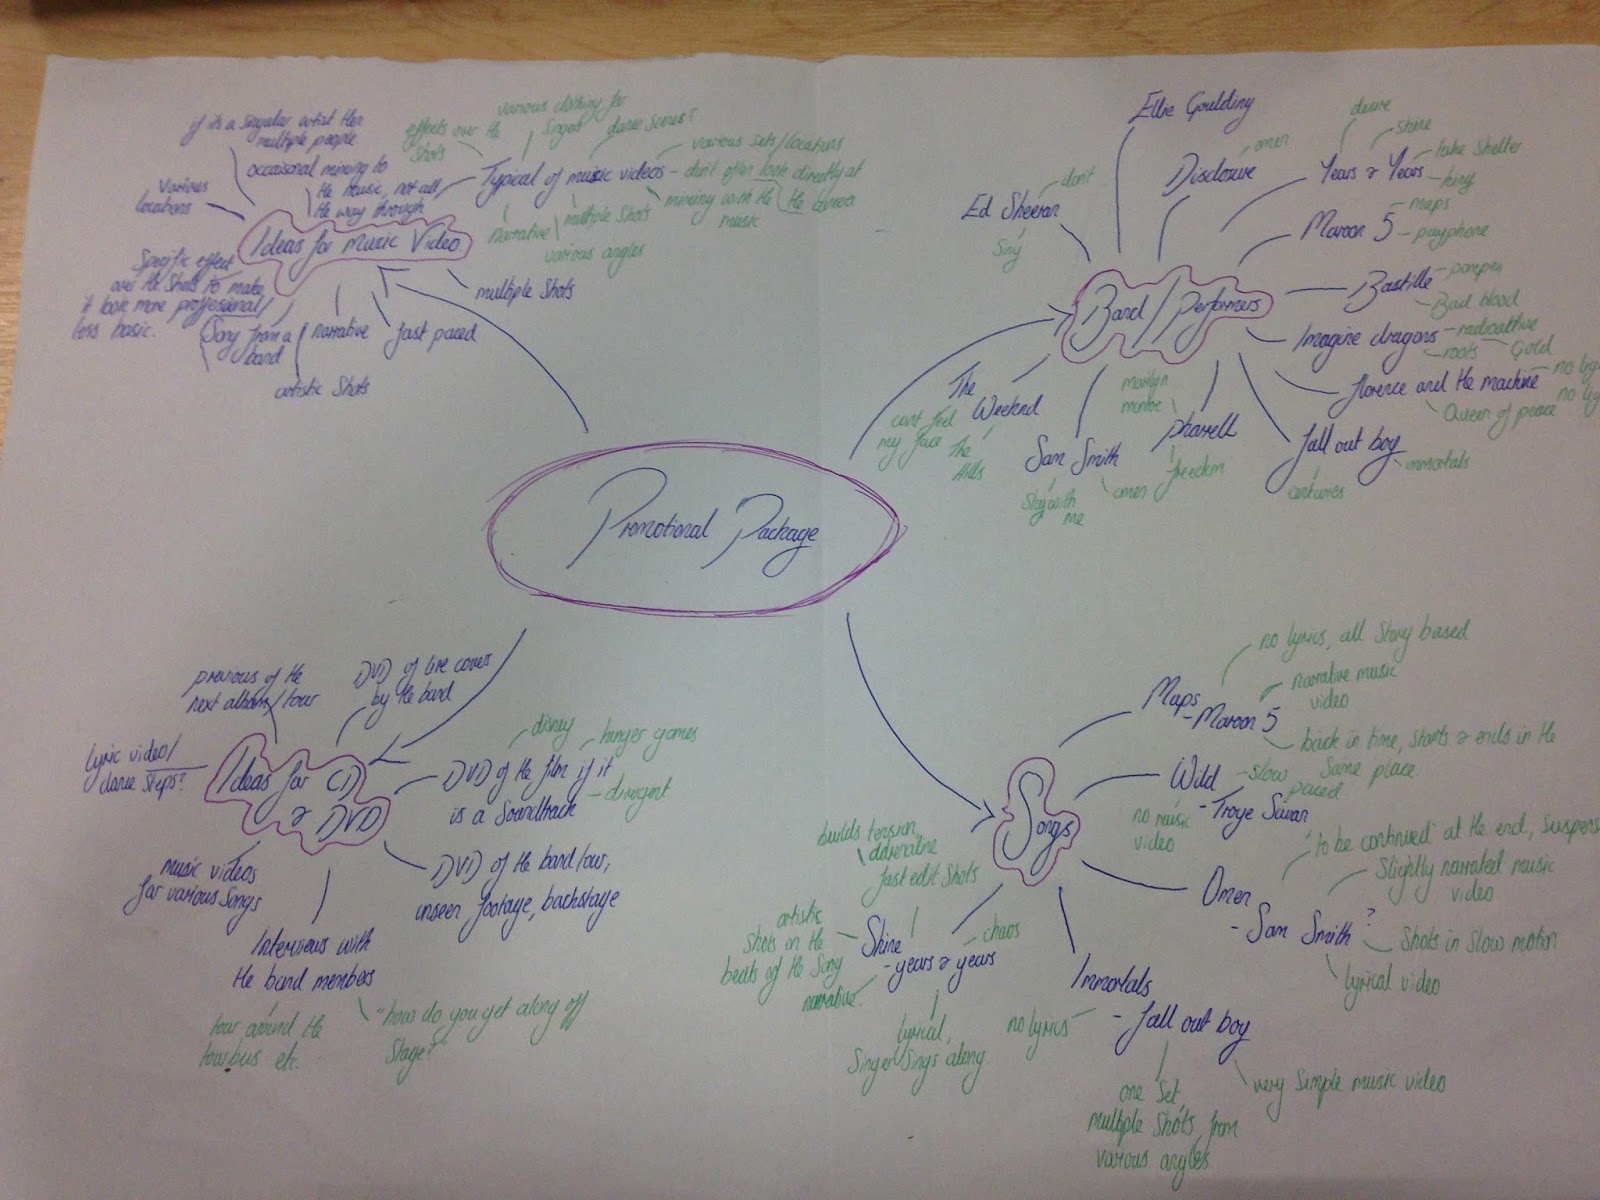 Promotional Package
Ideas for music Video
if its a singular artist then
multiple people
occaisonal miming to
the music, not all
the way through
various
locations
Specific effect
over the shots to make
it look more proffesional/
less basic.
Song from a
band
narrative
artistic shots
fast paced
multiple shots
Typical of music videos
effects over the
shots
various clothing for
singers
dance scenes?
various sets/locations
- don't often look directly at
the camera
miming with the
music
multiple shots
various angles
narrative
Band/Performers
Ed Sheeran
don't
Sing
Ellie Goulding
Disclosure
omen
Years & Years
desire
shine
take shelter
king
Maroon 5
maps
payphone
Bastille
pompeii
Bad blood
Imagine dragons
radioactive
roots
Gold
florence and the machine
no lig
no lig
Queen of peace
fall out boy
immortals
centuries
pharell
marilyn
monroe
freedom
Sam Smith
Stay with
me
omen
The
Weeknd
cant feel
my face
The
Hills
Ideas for CD
& DVD
previous of the
next album/tour
DVD of live covers
by the band
lyric video/
dance steps?
DVD of the film if it
is a soundtrack
disney
hunger games
divergent
DVD of the band tour,
unseen footage, backstage
music videos
for various songs
Interviews with
the band members
tour around the
tourbus etc.
"how do you get along off
stage?"
Songs
Maps
- Maroon 5
no lyrics, all story based
narrative music
video
back in time, starts & ends in the
same place
Wild
- Troye Sivan
slow
paced
no music
video
Omen
- Sam Smith ?
'to be continued' at the end, suspens
Slightly narrated music
video
Shots in slow motion
lyrical video
Immortals
- fall out boy
no lyrics
one set,
multiple shots, from
various angles
very simple music video
Shine
- years & years
builds tension,
adrenaline
fast edit shots
chaos
artistic
shots on the
beats of the song
narrative.
lyrical,
singer sings along